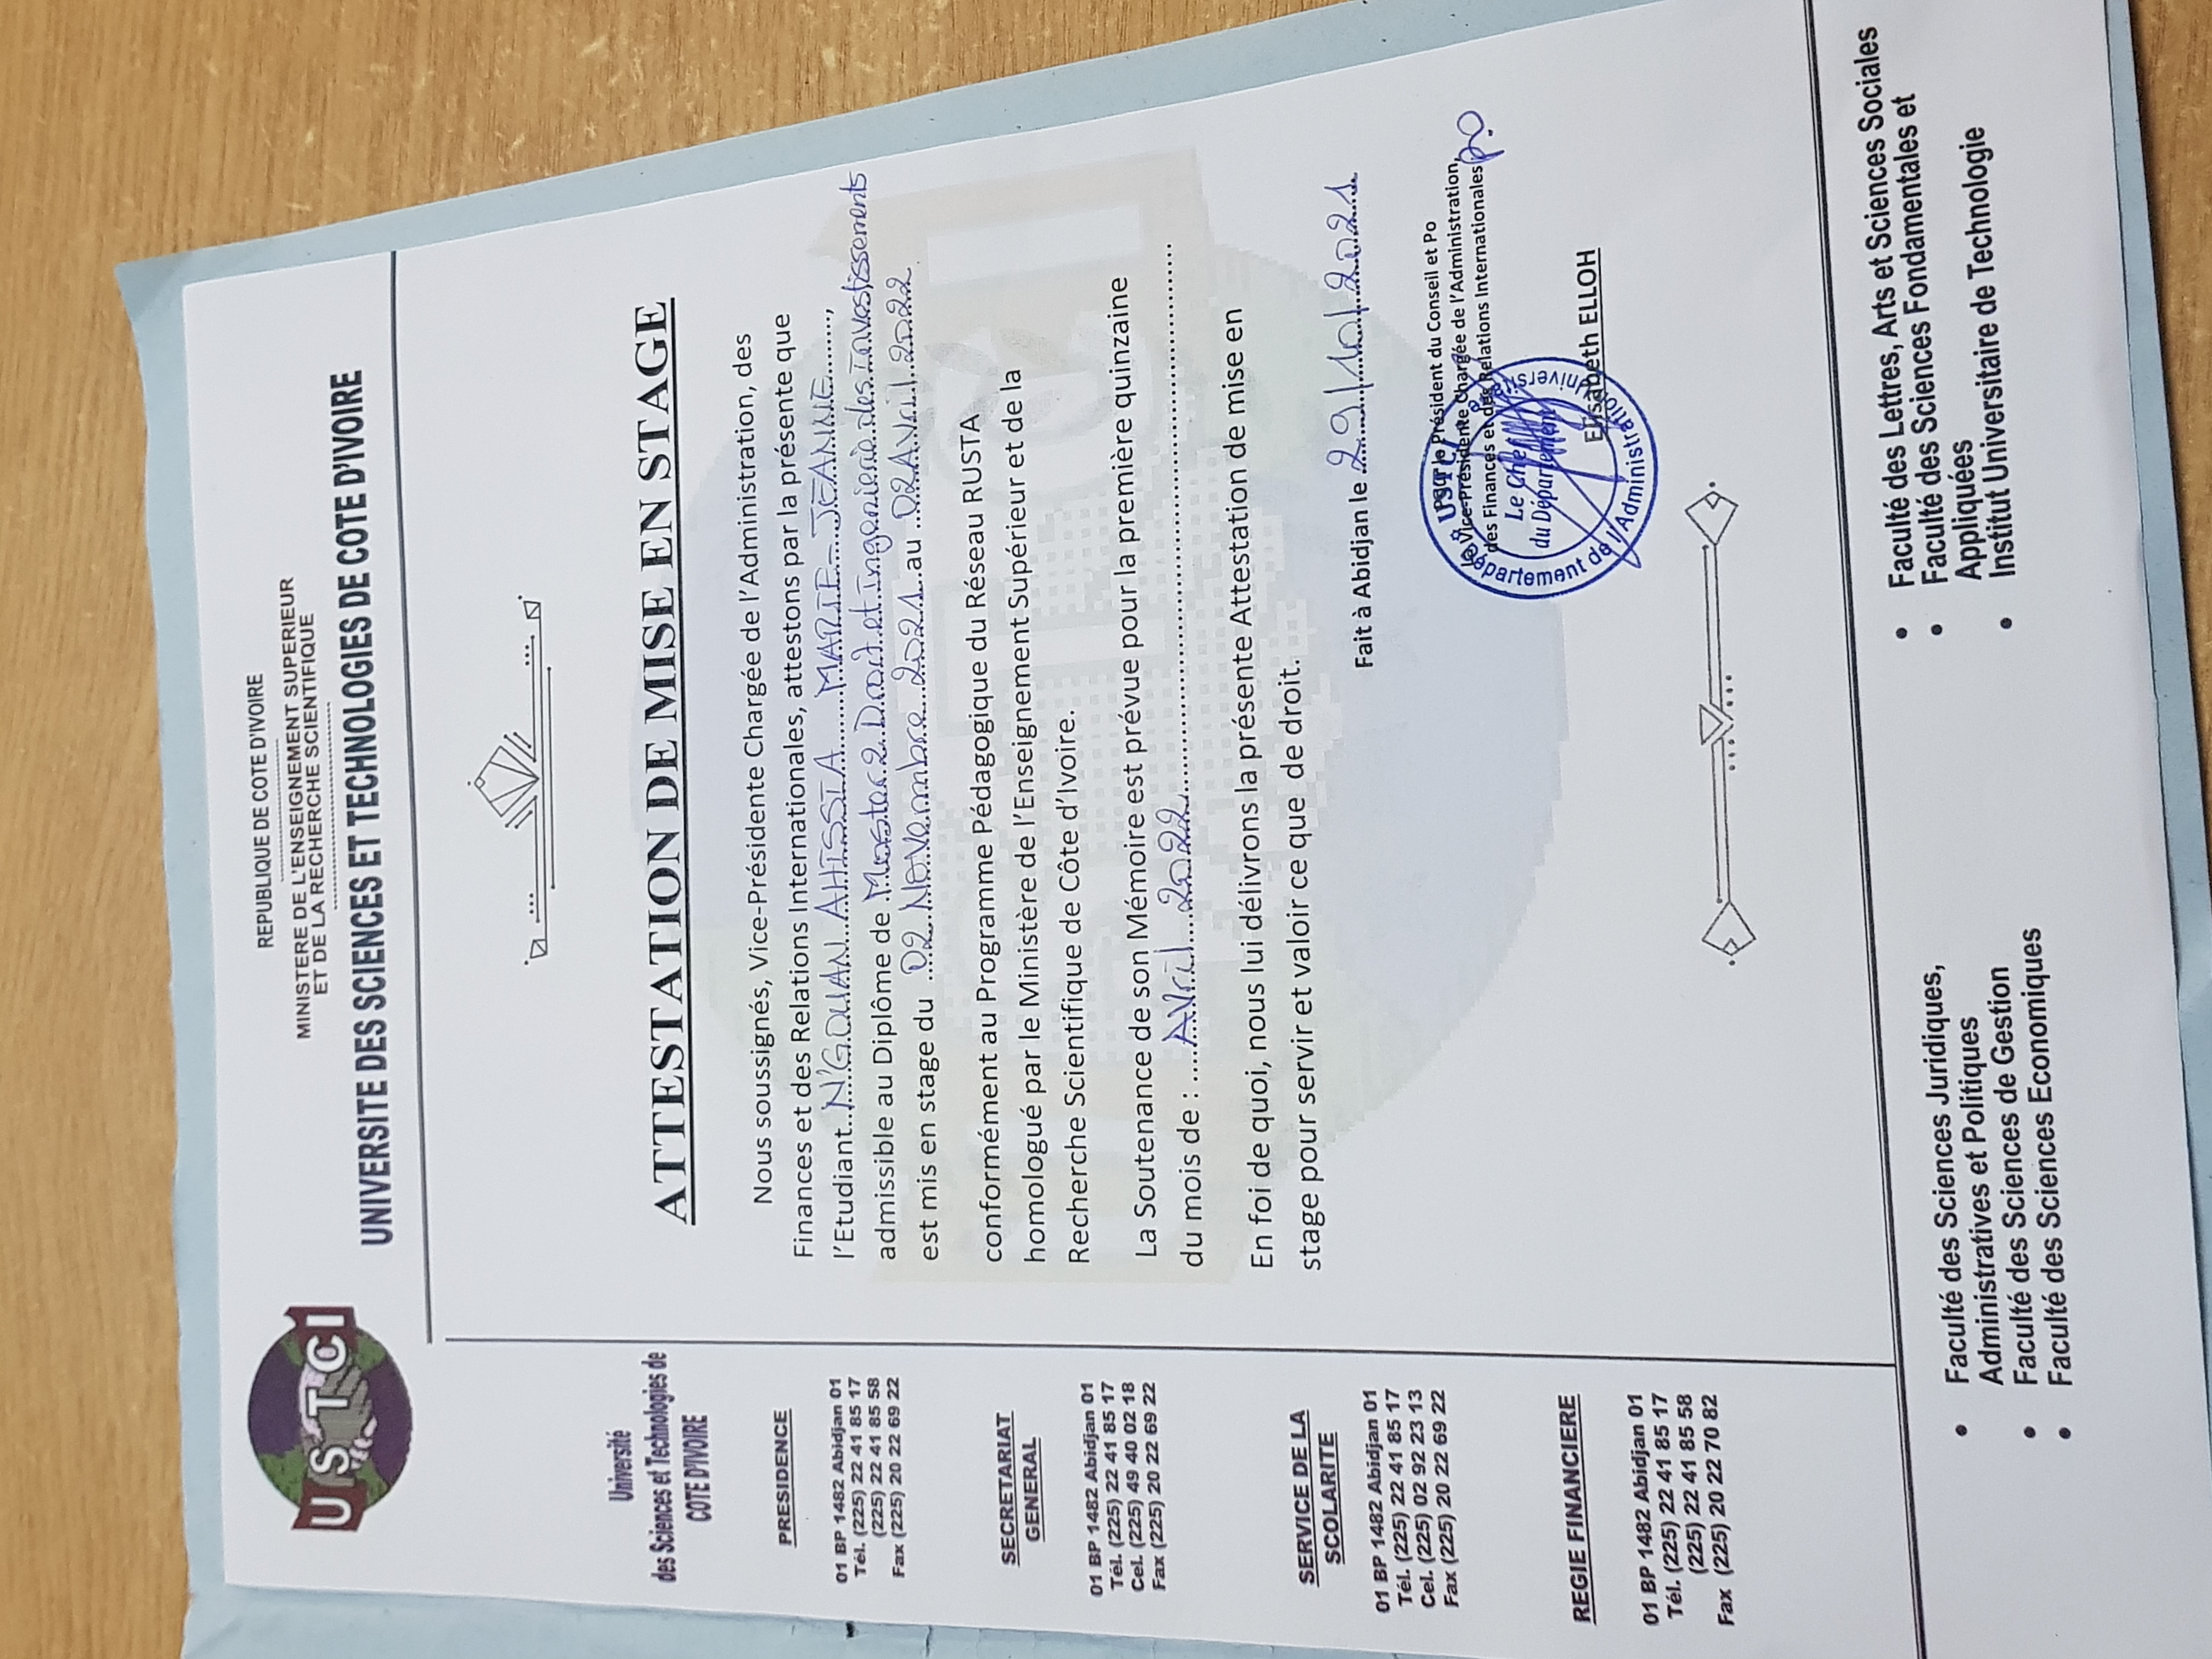 USTCI
REPUBLIQUE DE COTE D'IVOIRE
MINISTERE DE L'ENSEIGNEMENT SUPERIEUR
ET DE LA RECHERCHE SCIENTIFIQUE
UNIVERSITE DES SCIENCES ET TECHNOLOGIES DE COTE D'IVOIRE
Université
des Sciences et Technologies de
COTE D'IVOIRE
PRESIDENCE
01 BP 1482 Abidjan 01
Tél. (225) 22 41 85 17
(225) 22 41 85 58
Fax (225) 20 22 69 22
SECRETARIAT
GENERAL
01 BP 1482 Abidjan 01
Tél. (225) 22 41 85 17
Cel. (225) 49 40 02 18
Fax (225) 20 22 69 22
SERVICE DE LA
SCOLARITE
01 BP 1482 Abidjan 01
Tél. (225) 22 41 85 17
Cel. (225) 02 92 23 13
Fax (225) 20 22 69 22
REGIE FINANCIERE
01 BP 1482 Abidjan 01
Tél. (225) 22 41 85 17
(225) 22 41 85 58
Fax (225) 20 22 70 82
ATTESTATION DE MISE EN STAGE
Nous soussignés, Vice-Présidente Chargée de l'Administration, des
Finances et des Relations Internationales, attestons par la présente que
l'Etudiant..N'GOUAN AHISSIA MARIE-JEANNE........,
admissible au Diplôme de Master 2 Droit et Ingenierie des Investissements
est mis en stage du 02 Novembre 2021 au 02 Avril 2022
conformément au Programme Pédagogique du Réseau RUSTA
homologué par le Ministère de l'Enseignement Supérieur et de la
Recherche Scientifique de Côte d'Ivoire.
La Soutenance de son Mémoire est prévue pour la première quinzaine
du mois de : ....Avril 2022..........
En foi de quoi, nous lui délivrons la présente Attestation de mise en
stage pour servir et valoir ce que de droit.
Fait à Abidjan le 29/10/2021
Pour le Président du Conseil et Po
la Vice-Présidente Chargée de l'Administration,
des Finances et des Relations Internationales
P.O
USTCI
Département de l'Administration Universitaire
Le Chef
du Département
Elisabeth ELLOH
• Faculté des Sciences Juridiques,
Administratives et Politiques
• Faculté des Sciences de Gestion
• Faculté des Sciences Economiques
• Faculté des Lettres, Arts et Sciences Sociales
• Faculté des Sciences Fondamentales et
Appliquées
• Institut Universitaire de Technologie